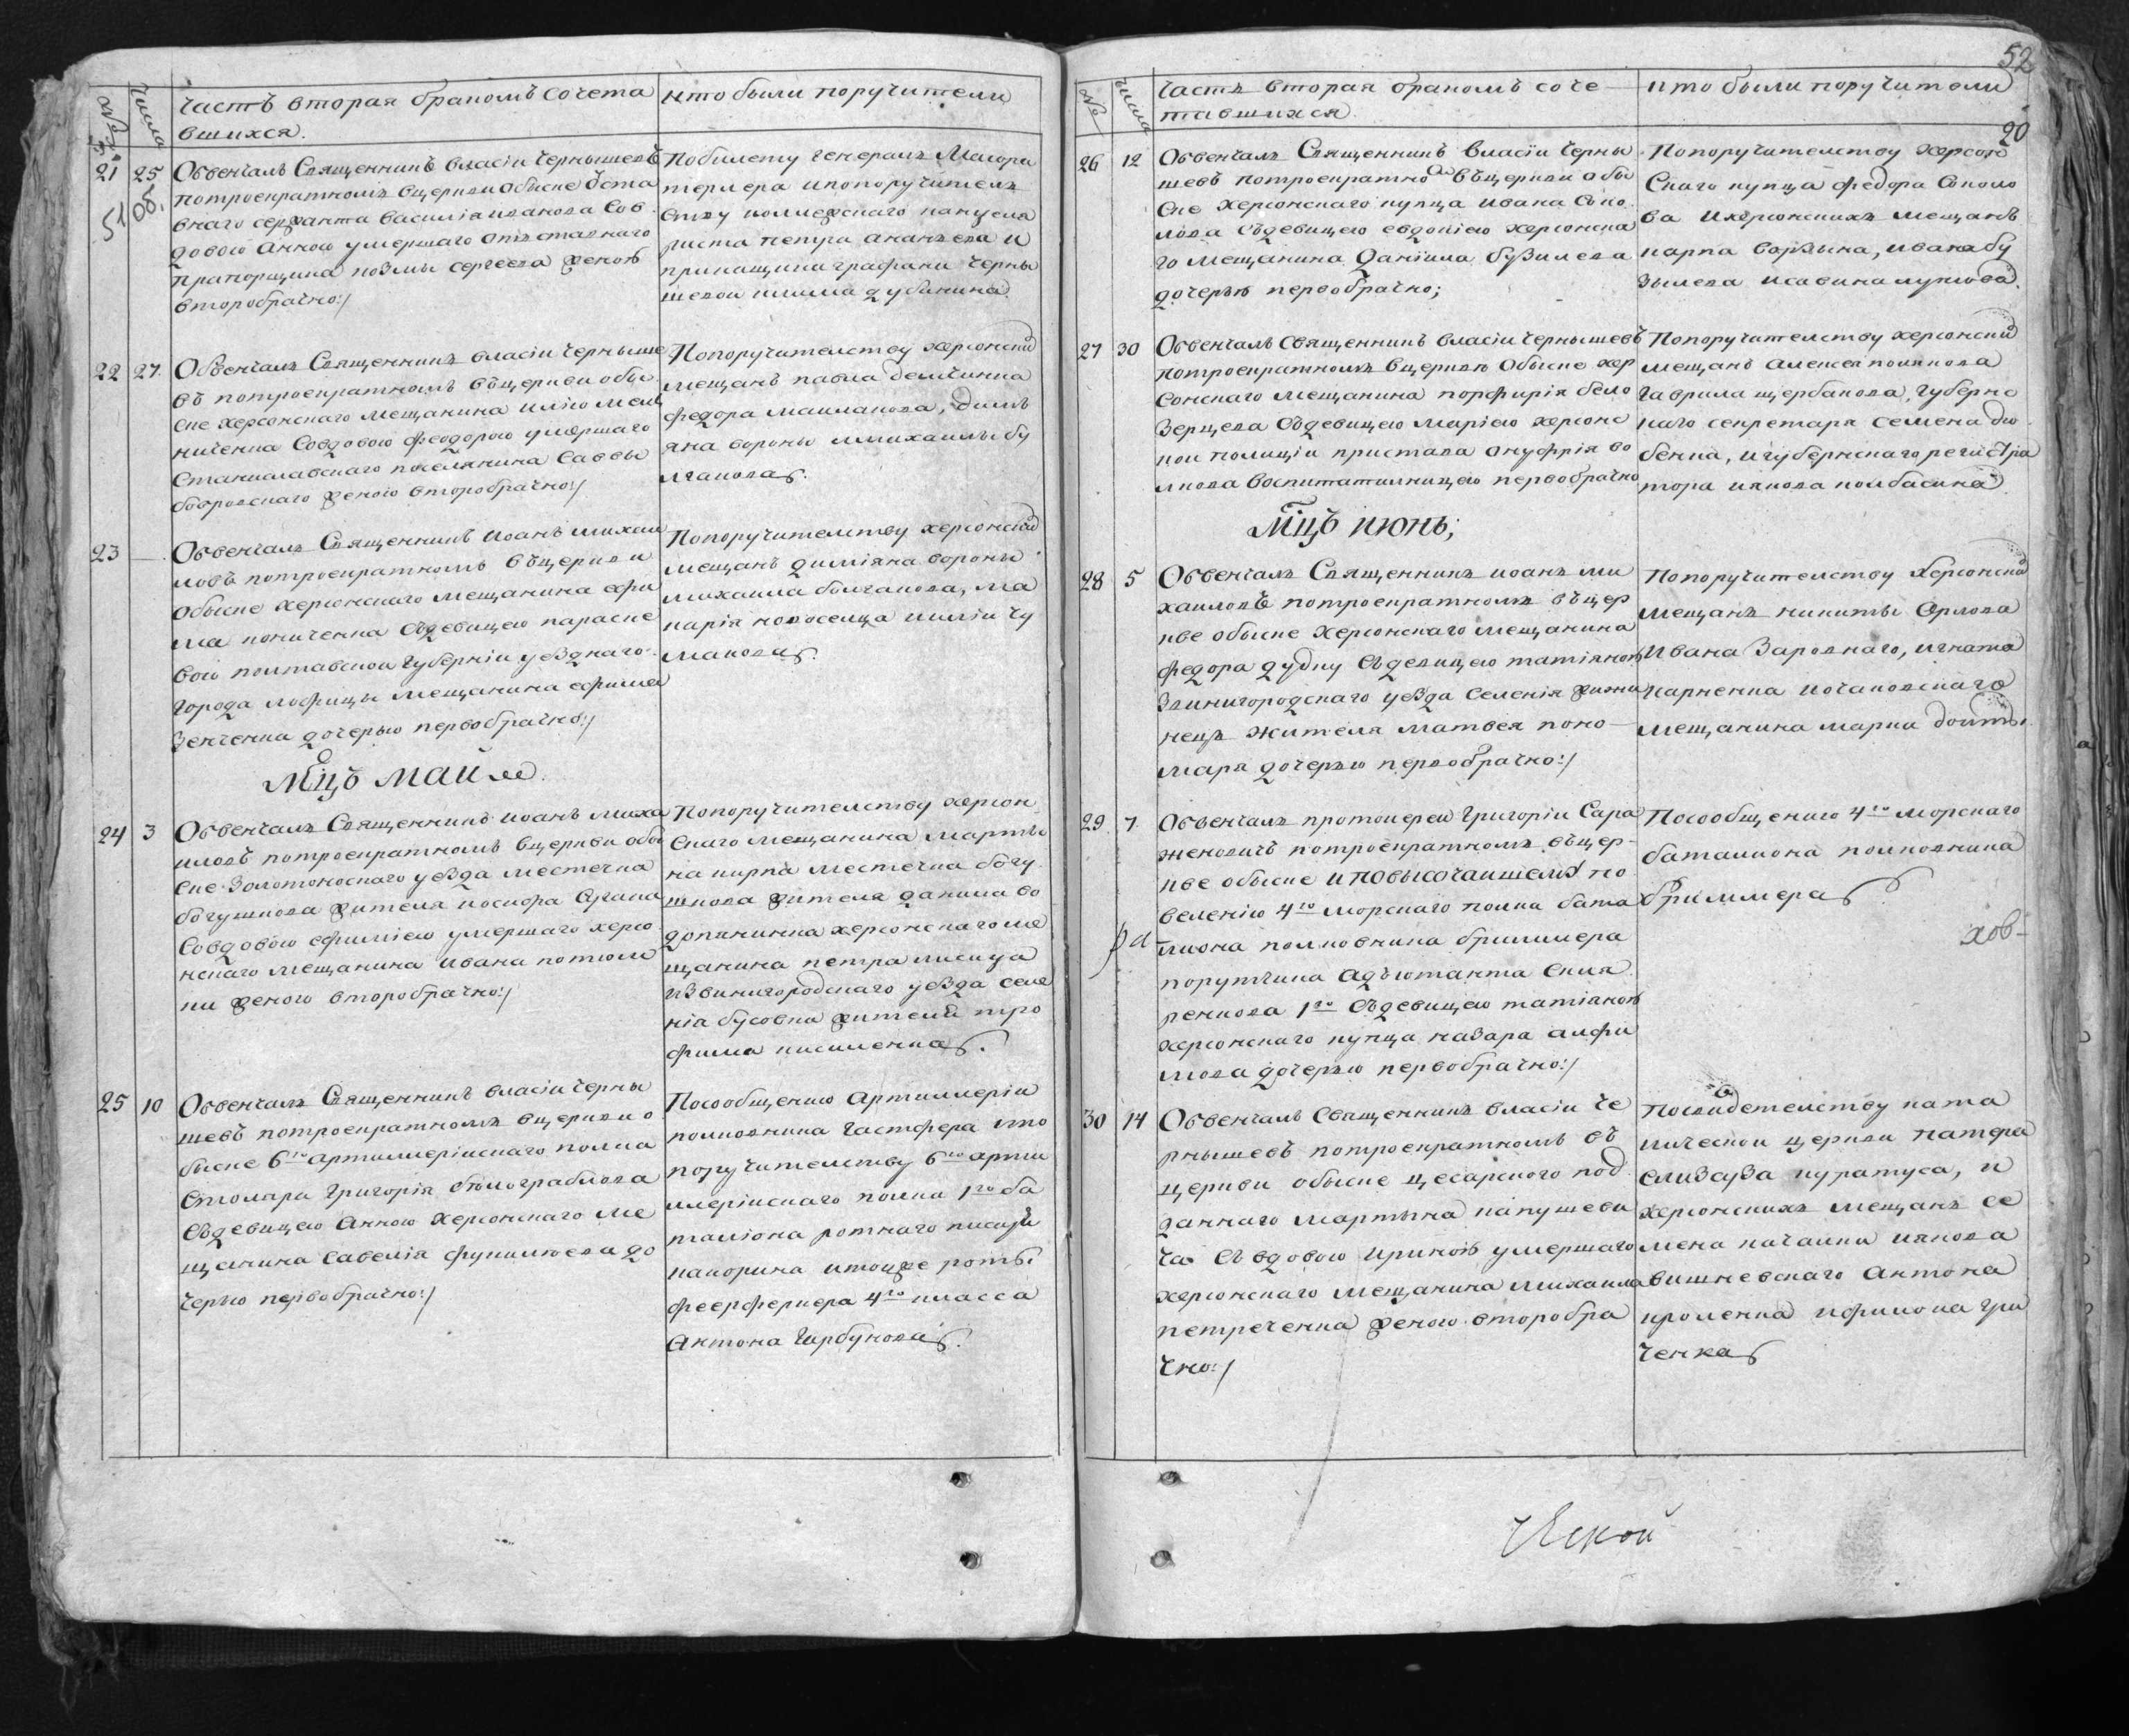 №
числа
Часть вторая бракомъ сочета
вшихся.
кто были поручители
21
25
51 об.
Обвенчалъ Священникъ власіи чернышевъ
потроекратномъ вцеркви обыске Отста
внаго сержанта василіа иванова Сов
довою анною умершаго отъставнаго
прапорщика козмы сергеева женою
второбрачно:/
Побилету генералъ Маиора
терлера ипопоручитель
ству коллежскаго канцеля
риста петра ананьева и
прикащика графани черны
шевои
22
27.
Обвенчалъ Священникъ власіи черныше
въ потроекратномъ въцеркви обы
ске херсонскаго мещанина илію мель
ниченка Совдовою феодорою умершаго
Станиславскаго поселянина Саввы
бобровскаго женою второбрачно:/
Попоручителству херсонски
мещанъ павла демченка
федора маилакова, демь
яна вороны имихаилы бу
лгакова.
23
—
Обвенчалъ Священникъ иоанъ михаи
ловъ потроекратномъ въцеркви
обыске херсонскаго мещанина ефи
ма кониченка Съдевицею параске
вою полтавскои губерніи уезднаго
города лофицы мещанина ефима
Зенченка дочерью первобрачно:/
Попоручителству херсонски
мещанъ диміяна вороны
михаила болгакова, ма
карія новоселца иіліи чу
макова.
Мцъ маи
24
3
Обвенчалъ Священникъ иоанъ миха
иловъ потроекратномъ вцеркви обы
ске Золотоноскаго уезда местечка
богушкова жителя иосифа
Совдовою ефиміею умершаго херсо
нскаго мещанина ивана потом
ки женого второбрачно:/
Попоручителству херсон
Скаго мещанина марты
на кирпа местечка богу
шкова жителя данила во
допянинка херсонскаго ме
щанина петра лисица
иЗвинигородскаго уезда селе
ніа бусовки жителя тро
фима кисиленка.
25
10
Обвенчалъ Священникъ власіи черны
шевъ потроекратномъ вцеркви о
быске 6го артиллеріискаго полка
Столяра григорія белограблова
Съдевицею анною херсонскаго ме
щанина савелія до
черью первобрачно:/
Посообщенію артиллеріи
полковника гастфера ипо
поручителству 6го арти
ллеріискаго полка 1го ба
таліона ротнаго писаря
какорина итоиже роты
феерферкера 4го класса
Антона Гарбунова.
52
20
№
числа
Часть вторая бракомъ соче
тавшихся
кто были поручители
26
12
Обвенчалъ Священникъ власіи черны
шевъ потроекратномъ въцеркви обы
ске херсонскаго купца ивана Соко
лова Съдевицею евдокіею херсонска
го мещанина даніила бузилева
дочерью первобрачно;
Попоручителству херсон
Скаго купца федора Соколо
ва ихерсонскихъ мещанъ
карпа ивана бу
зылева исавина лукьова.
27
30
Обвенчалъ Священникъ власіи чернышевъ
потроекратномъ вцеркви обыске хер
сонскаго мещанина порфирія бело
Зерцева Съдевицею маріею херсонс
кои полиціи пристава онуфрія во
лкова воспитателницею первобрачно
Попоручителству херсонски
мещанъ алексея полякова
гаврила щербакова, губернс
каго секретаря семена дю
бенка, игубернскаго регистра
тора иякова колбасина
Мцъ июнь;
28
5
Обвенчалъ Священникъ иоанъ ми
хаиловъ потроекратномъ въцер
кве обыске херсонскаго мещанина
федора дудку Съдевицею татіяною
Звинигородскаго уезда селенія
нецъ жителя матвея поно
маря дочерью первобрачно:/
Попоручителству херсонски
мещанъ никиты Орлова
ивана Зароднаго, игната
карненка иочаковскаго
мещанина марка
29
7.
Обвенчалъ протоиереи григоріи Сара
женовичъ потроекратномъ въцер-
кве обыске и повысочаишему по
велению 4го морскаго полка бата
лиона полковника бриммера
порутчика адъютанта Скля
ренкова 1го Съдевицею татіяною
херсонскаго купца назара алфи
мова дочерью первобрачно:/
Посообщению 4го морскаго
баталиона полковника
бриммера
30
14
Обвенчалъ Священникъ власіи че
рнышевъ потроекратномъ въ
церкви обыске цесарского под
даннаго мартына капушеви
ча Съвдовою ириною умершаго
херсонскаго мещанина михаила
петреченка женою второбра
чно:/
Посвидетелству ката
лическои церкви патера
куратуса, и
херсонскихъ мещанъ се
мена качалки иякова
вишневскаго антона
кроленка ифилона гри
ченка